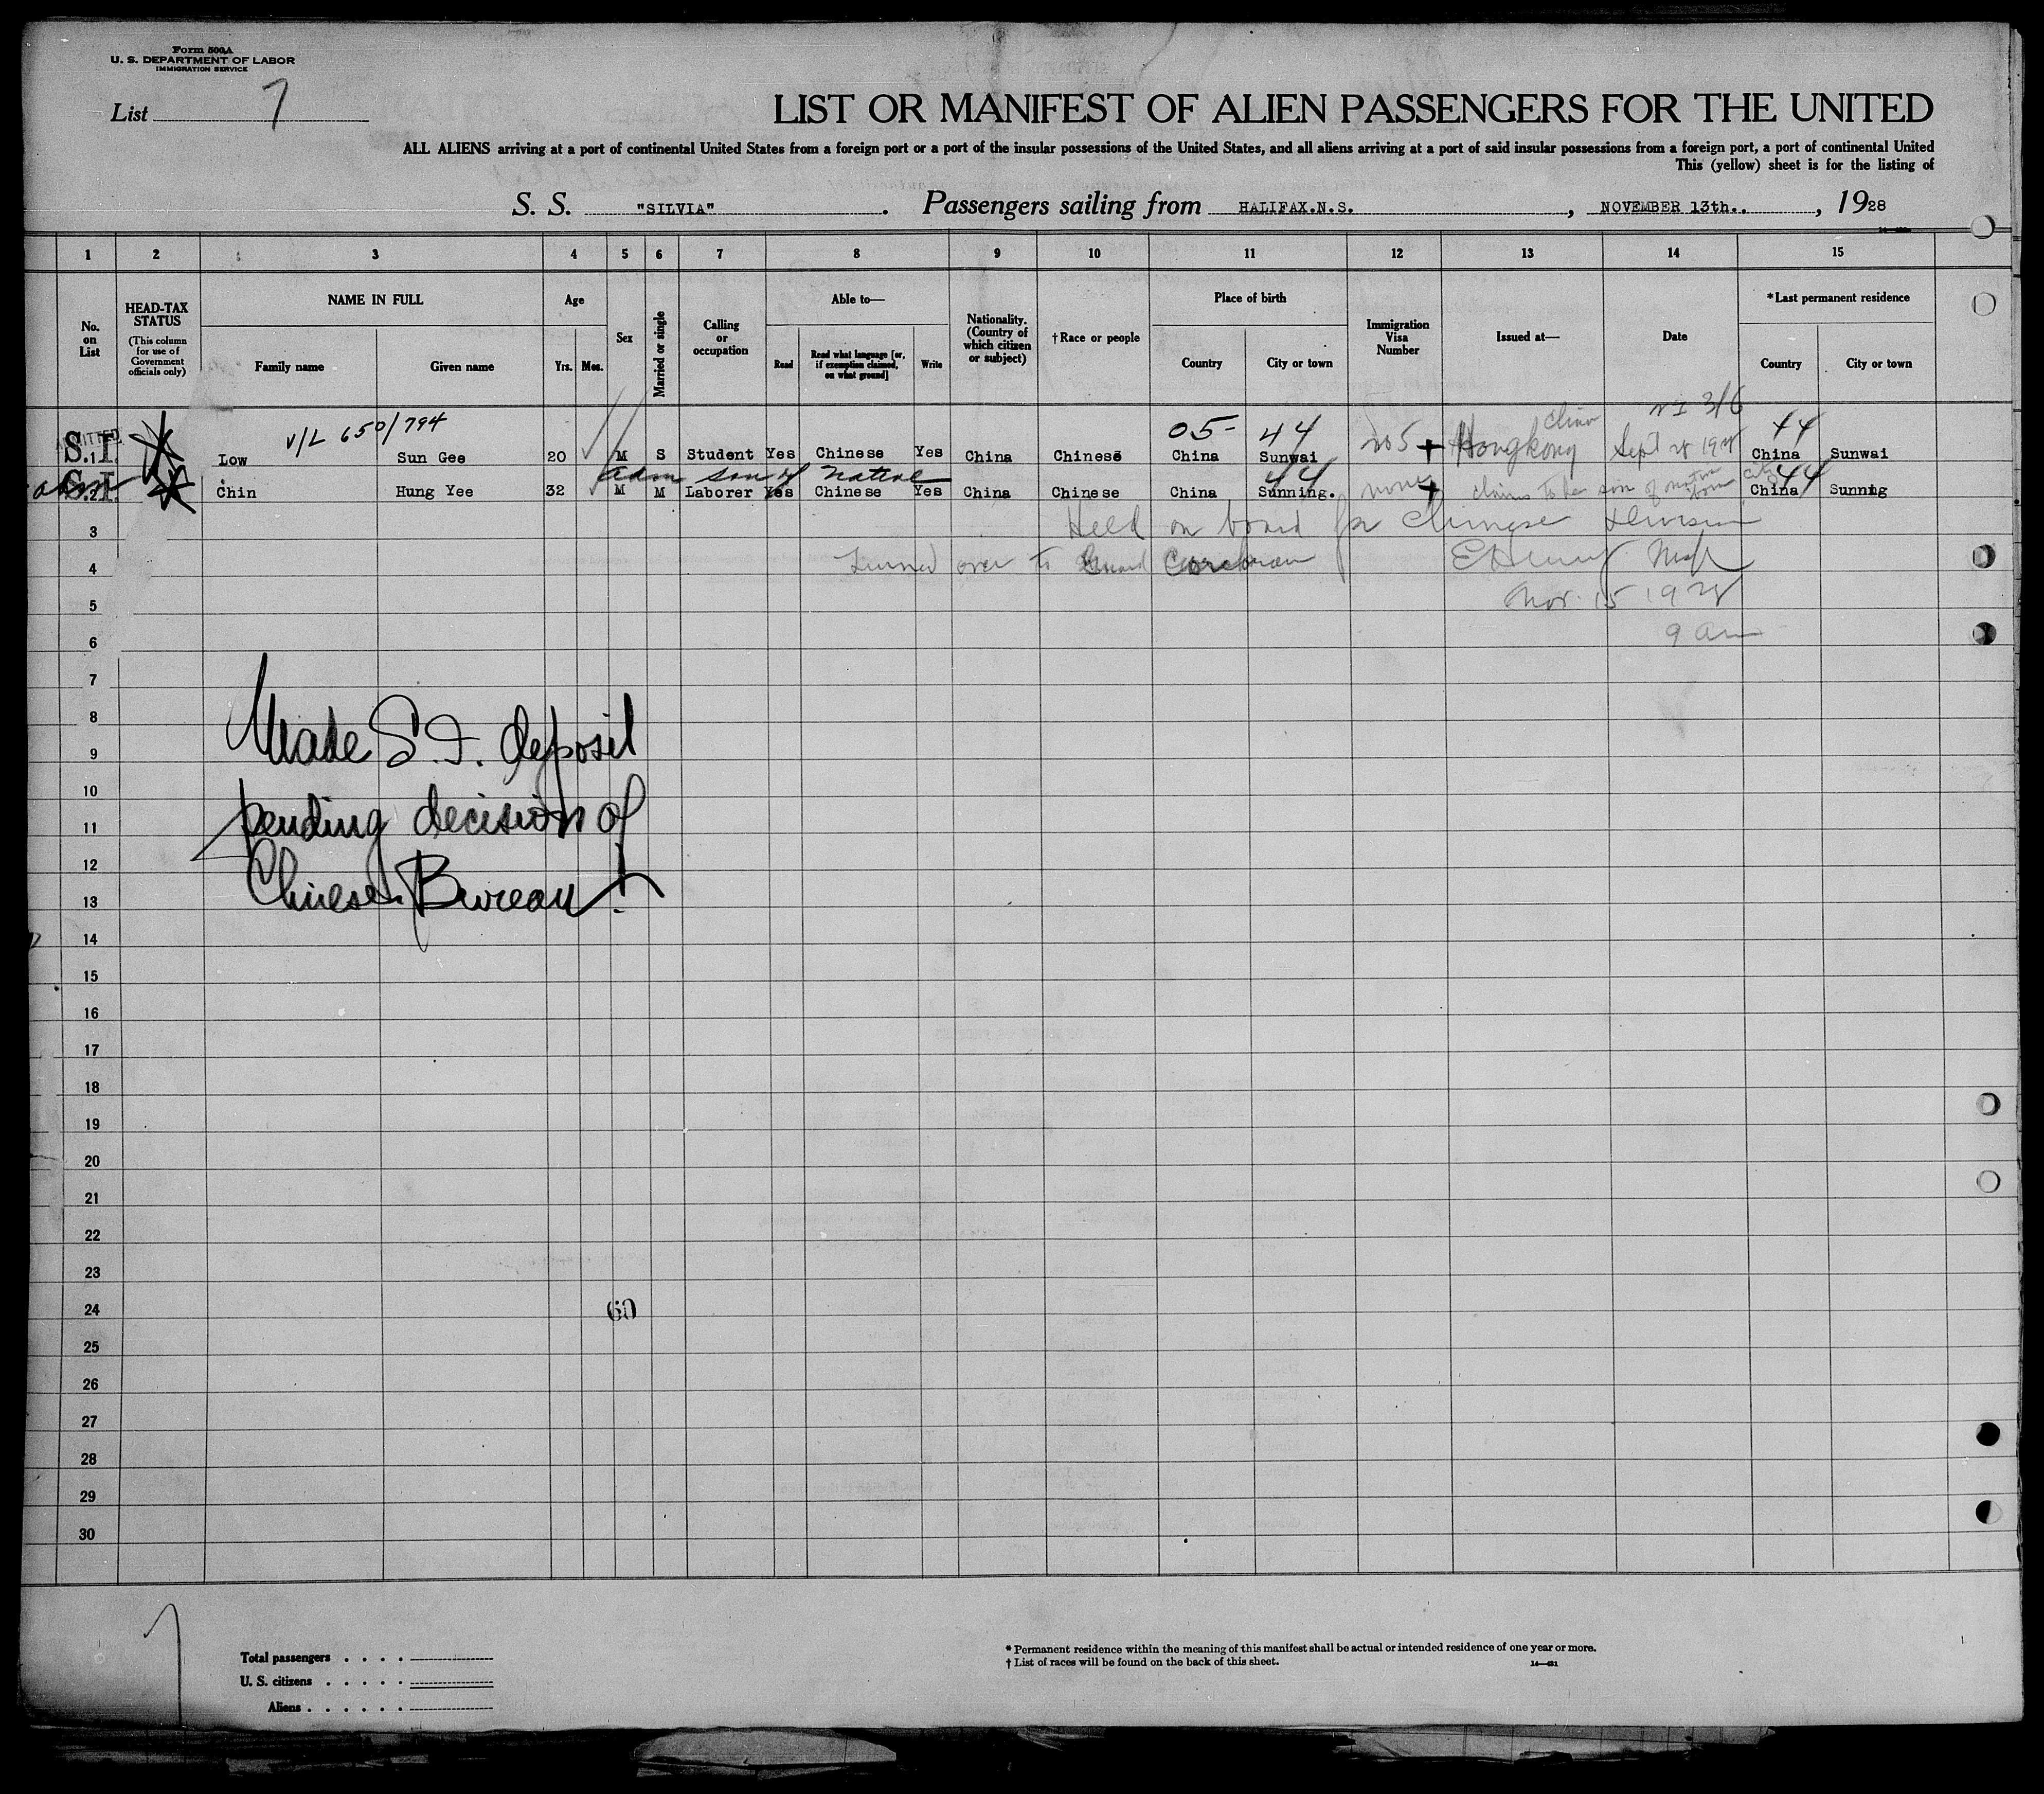 Form 500A
U. S. DEPARTMENT OF LABOR
IMMIGRATION SERVICE
List 7
LIST OR MANIFEST OF ALIEN PASSENGERS FOR THE UNITED
ALL ALIENS arriving at a port of continental United States from a foreign port or a port of the insular possessions of the United States, and all aliens arriving at a port of said insular possessions from a foreign port, a port of continental United
This (yellow) sheet is for the listing of
S. S. "SILVIA". Passengers sailing from HALIFAX.N.S., NOVEMBER 13th.., 1928
1 2 3 4 5 6 7 8 9 10 11 12 13 14 15
No. on List
HEAD-TAX STATUS (This column for use of Government officials only)
NAME IN FULL
Family name Given name
Age
Yrs. Mos.
Sex
Married or single
Calling or occupation
Able to—
Read Read what language [or, if exemption claimed, on what ground] Write
Nationality. (Country of which citizen or subject)
†Race or people
Place of birth
Country City or town
Immigration Visa Number
Issued at—
Date
*Last permanent residence
Country City or town
V/L 650/794 05- 44 China 3/6 44
S.I. 1 Low Sun Gee 20 M S Student Yes Chinese Yes China Chinese China Sunwai No 5 + Hongkong Sept 28 1928 China Sunwai
adm son of native 44 44
S.I. Chin Hung Yee 32 M M Laborer Yes Chinese Yes China Chinese China Sunning. none + claims to be son of native born China Sunnng
3 Held on board for Chinese Division
4 Turned over to Guard Corcoran
5 Nov. 15 1928
6 9 am
7
8
Made S.I. deposit
9
10
pending decision of
11
12
Chinese Bureau!
13
14
15
16
17
18
19
20
21
22
23
24 60
25
26
27
28
29
30
Total passengers . . . .
U. S. citizens . . . . .
Aliens . . . . . .
* Permanent residence within the meaning of this manifest shall be actual or intended residence of one year or more.
† List of races will be found on the back of this sheet. 14—431